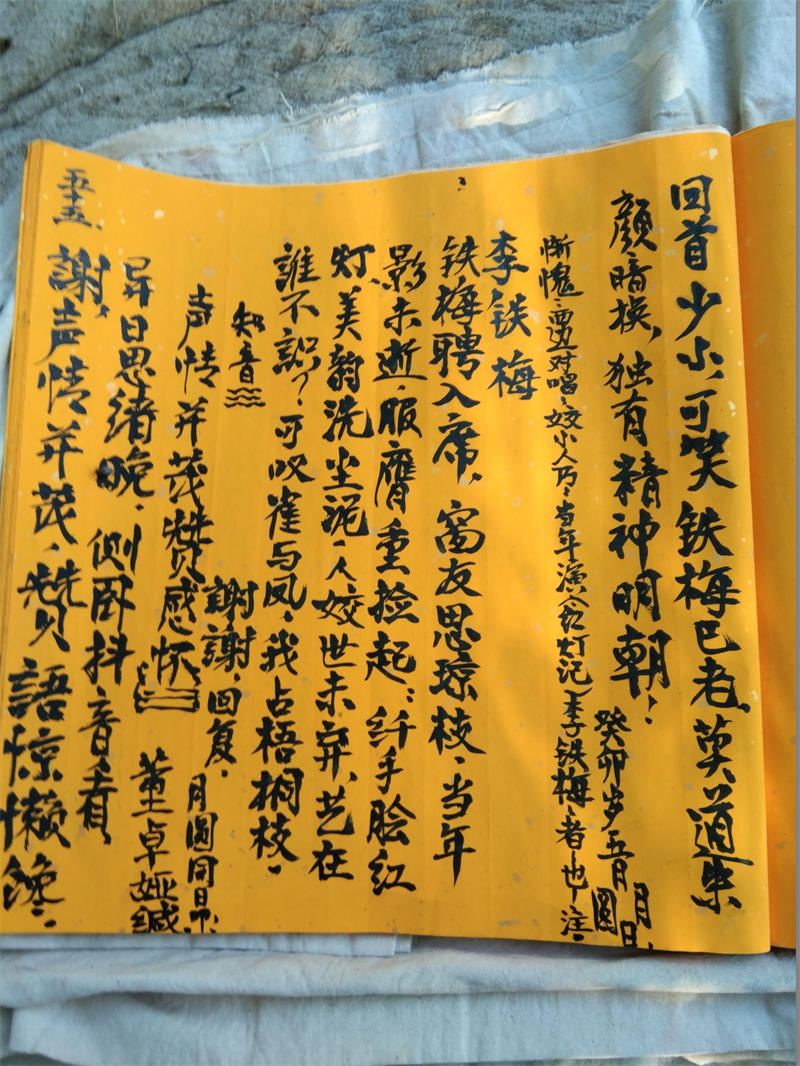 回首少小,可笑铁梅已老,莫道朱
颜暗换,独有精神明朝!
癸卯岁五月月圆日,
惭愧:两边对唱:姣小人乃:当年演《红灯记》李铁梅者也!注:
李铁梅
铁梅聘入席,窗友思琼枝,当年
影未逝,服膺重捡起:纤手脍红
灯,美韵洗尘泥,人姣世未弃,艺在
谁不识?可叹雀与凤,我占梧桐枝。
知音
谢谢,回复,
月圆同日
声情并茂赞感怀
董卓娅缄
异日思绪晚,侧卧抖音看,
谢声情并茂,赞语惊懒馋。
五十五、